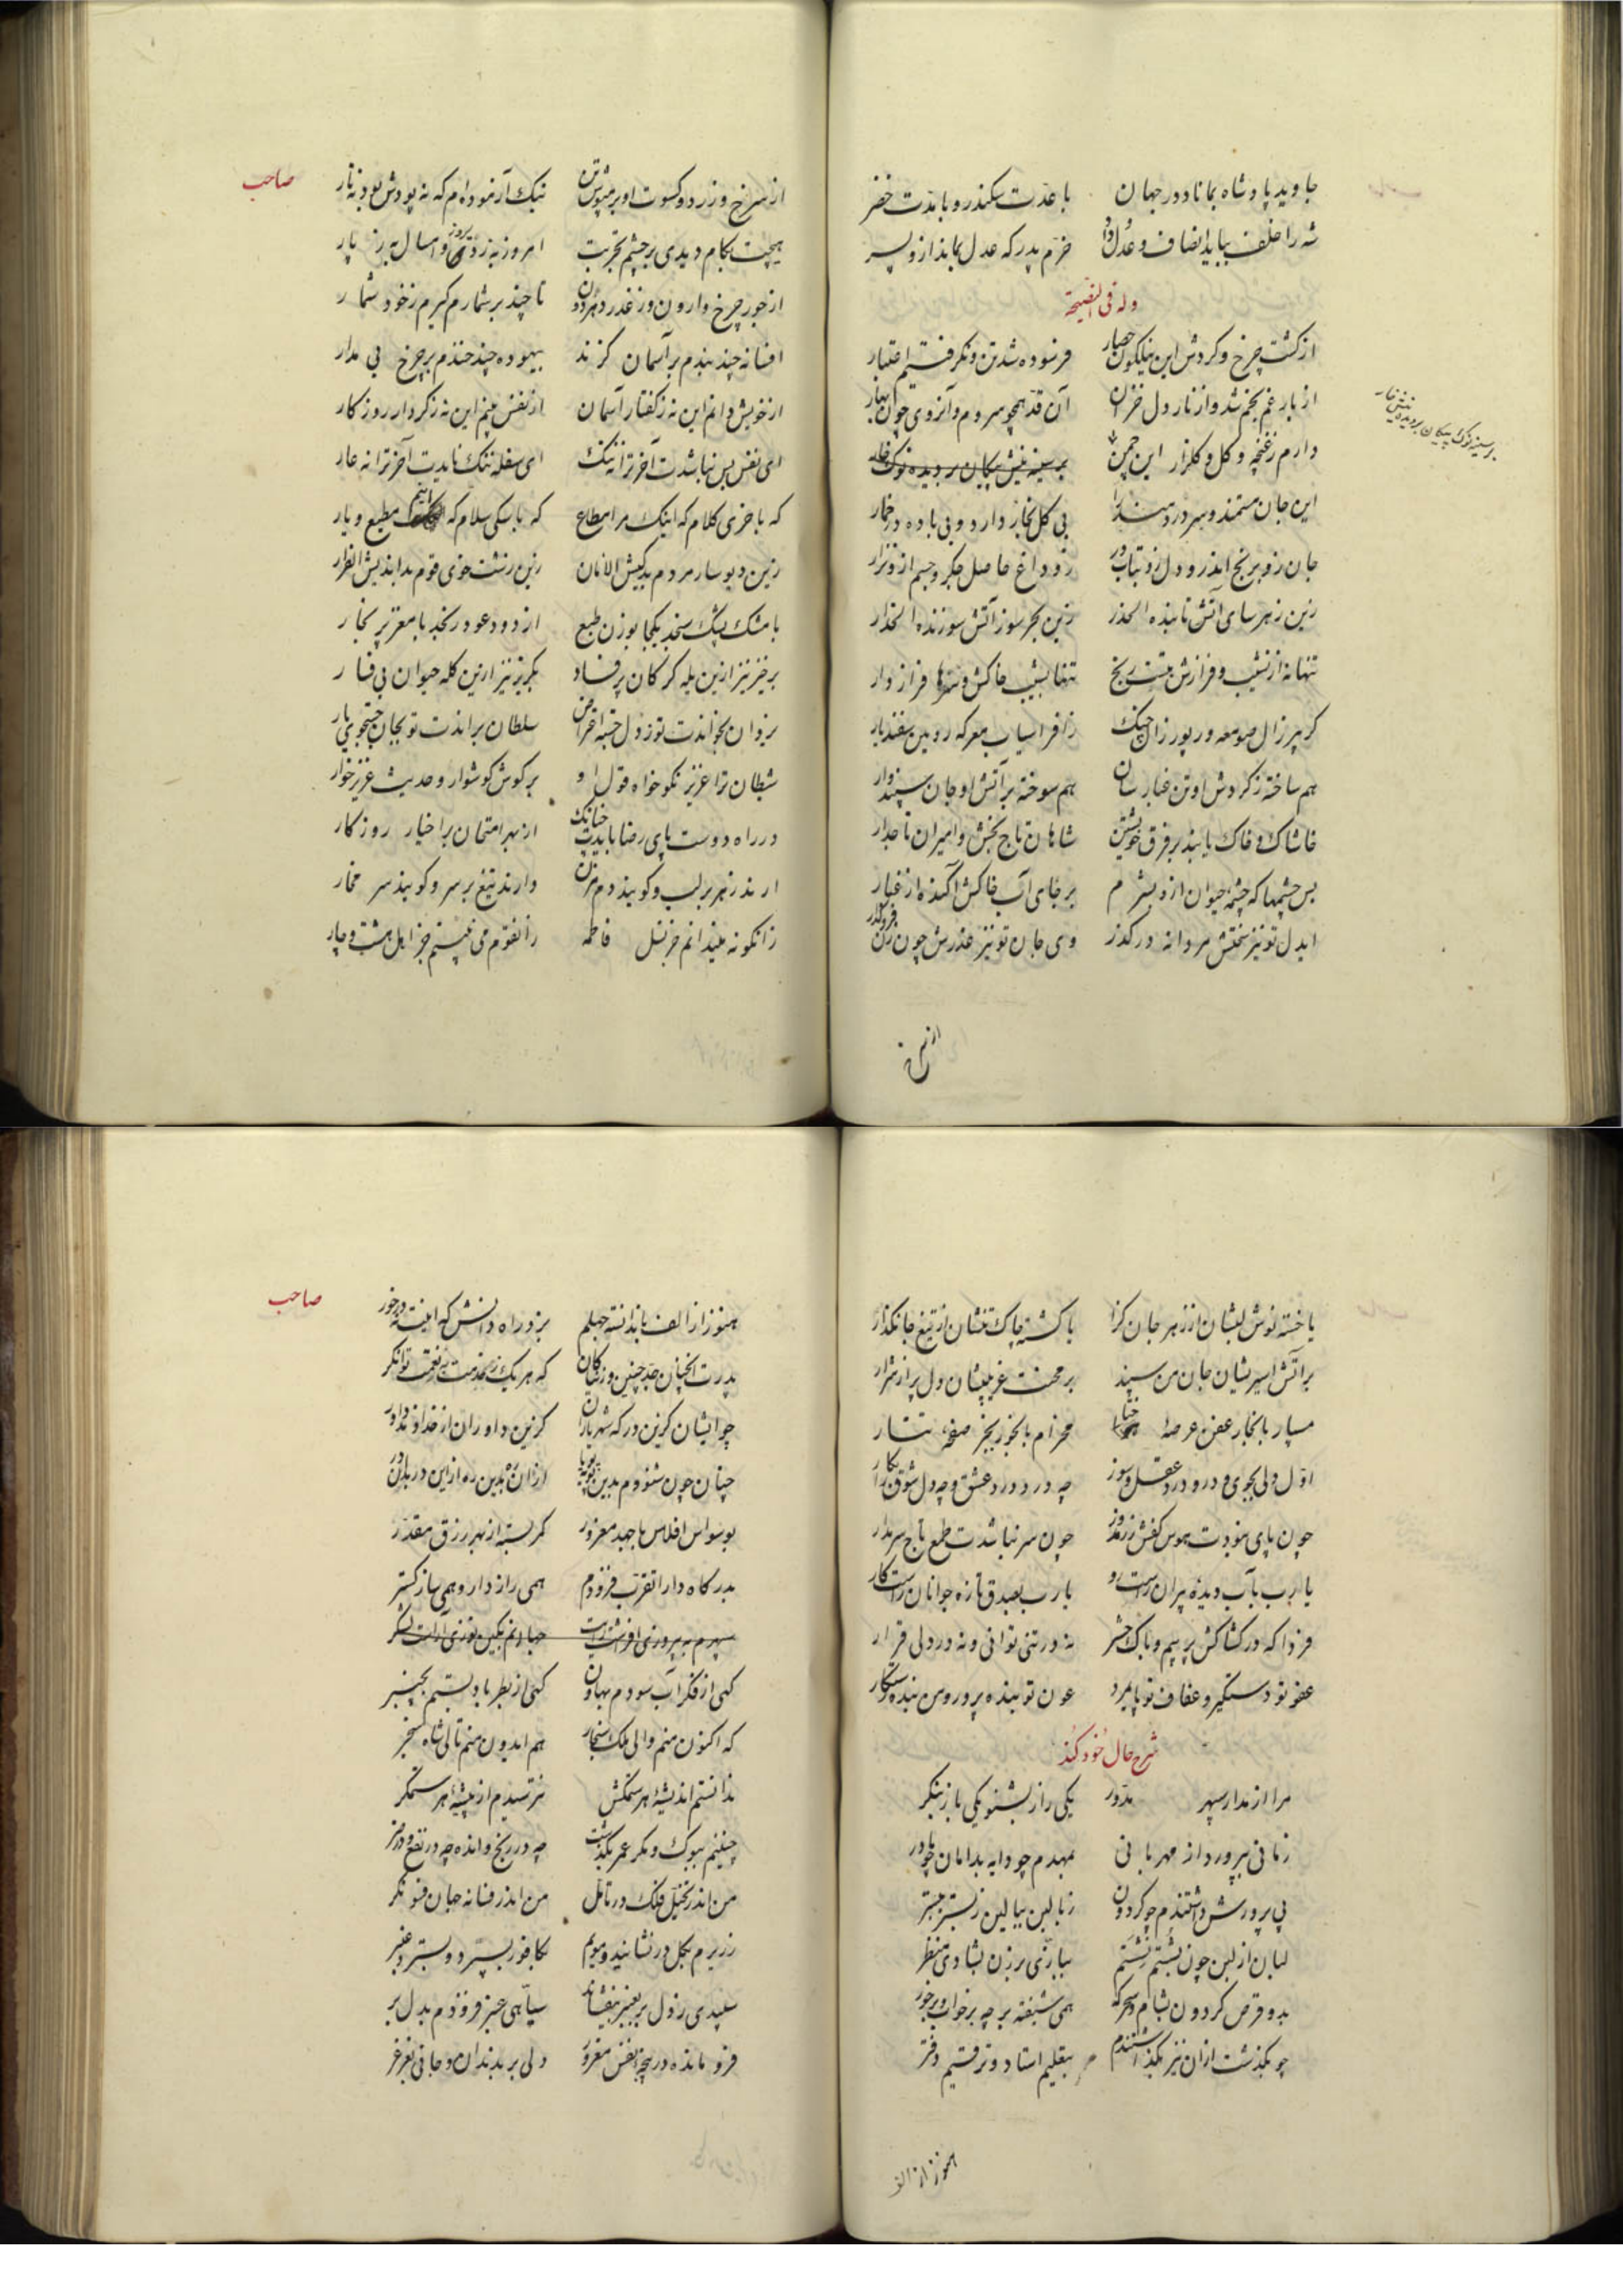 جاوید پادشاه بماناد در جهان با عدت سکندر و با مدت خضر
شه را خلف بباید انصاف و عدل و داد خرم پدر که عدل بماند ازو پسر
وله فی النصیحة
از کشت چرخ و کردش این نیلگون حصار فرسوده شد تن و نکرفتیم اعتبار
از بار غم بخم شد و از نار دل خزان آن قد همچو سرو م و آنروی چون بهار
دارم ز غنچه و کل و کلزار این چمن بر سینه نیش پیکان بر دیده نوک خار
بر سینه نوک پیکان بر دیده نیش خار
این جان مستمند و سر دردمند را بی کل بخار دارد و بی باده در خمار
جان زو برنج اندر و دل زو بتاب در زو داغ حاصل جکر و جسم ازو نزار
زین زهر سای آتش تابنده الحذر زین بحر سوز آتش سوزنده الحذار
تنها نه از نشیب و فرازش منت برنج تنها بشیب خاکش و سرها فراز دار
کز پیر زال صومعه و ر پور زال جنک ز افراسیاب معرکه رویین سفندیار
هم ساخته ز کردش او تن غبار سان هم سوخته بر آتش او جان سپند وار
خاشاک و خاک یابند بر فرق خویشتن شاهان تاج بخش و امیران تاجدار
بس چشمها که چشمه حیوان ازو بشرم بر جای آب خاکش آکنده از غبار
ایدل تو نیز سختش مردانه در کذر وی جان تو نیز عذرش چون زن فرو گذار
از سرخ
از سرخ و زرد و کسوت او بر مپوش تن نیک آزموده ام که نه پودش بود نه تار
هیچت بکام دیدی بر چشم تجربت امروز به ز دی و امسال به ز پار
از جور چرخ وارون وز غدر دهر دون تا چند بر شمارم کیرم ز خود شمار
افسانه چند بندم بر آسمان کزند بیهوده چند خندم بر چرخ بی مدار
از خویش دانم این نه ز کفتار آسمان از نفس بینم این نه ز کردار روزکار
ای نفس بس نباشدت آخر ترا نه ننک ای سفله ننک نایدت آخر ترا نه عار
که با خری کلام که اینک مرا مطاع که با سکی سلام که اینم مطیع و یار
زین دیو سار مردم بدکیش الامان زین زشت خوی قوم بداندیش الفرار
با مشک پشک سنجد یکجا بوزن طبع از دود عود رنجد با مغز پر بخار
برخیز نیز ازین یله کرکان پر فساد بگریز نیز ازین کله حیوان بی فسار
یزدان بخواندت تو ز دل جسته احتراز سلطان براندت تو بجان جستجوی بار
شیطان ترا عزیز نکو خواه و قول او بر کوش کوشوار و حدیث عزیز خوار
در راه دوست پای رضا بایدت چنانک از بهر امتحان برا خیار روزکار
ارند زهر بر لب و کویند دم مزن دارند تیغ بر سر و کویند سر مخار
زانکونه میندانم جز نسل فاطمه زانقوم می نبینم جز اهل هشت و چار
صاحب
با خسته نوش لبشان از زهر جان کزا با کشته چاک تنشان از تیغ جانکذار
بر آتش اسیر یشان جان من سپند بر محنت غریبیشان دل پر از شرار
مسپار با بخار عفن عرصه ختا مخرام با بخور بخز صفحه تتار
اول ولی بجوی و درو درد عقل سوز چه درد درد عشق و چه دل شوق را بکار
چون پای نبودت هوس کفش زر مدوز چون سر نباشدت طمع تاج سر مدار
یا رب بآب دیده پیران راست رو یا رب بصدق تازه جوانان راست کار
فردا که در کشاکش پر بیم و باک حشر نه در تنی توانی و نه در دلی قرار
عفو تو دستگیر و عفاف تو پایمرد عون تو بنده پرور و من بنده رستکار
شرح حال خود کند
مرا از مدار سپهر مدور یکی راز بشنو یکی باز بنکر
زمانی بپرورد از مهربانی بمهدم چو دایه بدامان چو مادر
پی پرورش داشتندم چو کردون ز بالین ببالین ز بستر ببستر
لبان از لبن چون بشستم نشستم
بدو قرص کردون بشام و سحرکه همی شیفته بر چه بر خواب و بر خور
چو بکذشت ازان نیز بکذاشتندم بتعلیم استاد و ترقیم دفتر
هنوز از الف
هنوز از الف با ندانسته جیلم بزد راه دانش که اینت نه در خور
پدرت انچنان جد چنین وز نیاکان که هر یک ز خدمت بنعمت توانکر
چو ایشان کزین درکه شهریاران کزین داوران از خداوند داور
چنان چون شنودم بدین پویه پویا
بوسواس افلاس با جهد معزور کمر بسته از بهر رزق مقدر
بدرکاه دارا تقرب فزودم همی راز دار و همی ساز کستر
سپهرم به پیروزی افراشت رایت جهانم بکین توزی آراست لشکر
کهی از فکر آب سودم بهاون کهی از بطر باد بستم بچنبر
که اکنون منم والی ملک سنجار هم ایدون منم تالی شاه سنجر
ندانستم اندیشه هر ستمکش نترسیدم از پیشه هر ستمکر
چنینم ببوک و مکر عمر بکذشت چه در رنج و انده چه در نفع و در ضر
من اندر تخیل فلک در تامل من اندر فسانه جهان فسونکر
زریرم بکل در نشانید و مویم بکافور بسپرد و بسترد عنبر
سپیدی ز دل بر بعنبر بیفشاند سیاهی عنبر فزودم بدل بر
فرو مانده در پنجه نفس مغرور دلی بر بدندان و جانی بغرغر
صاحب